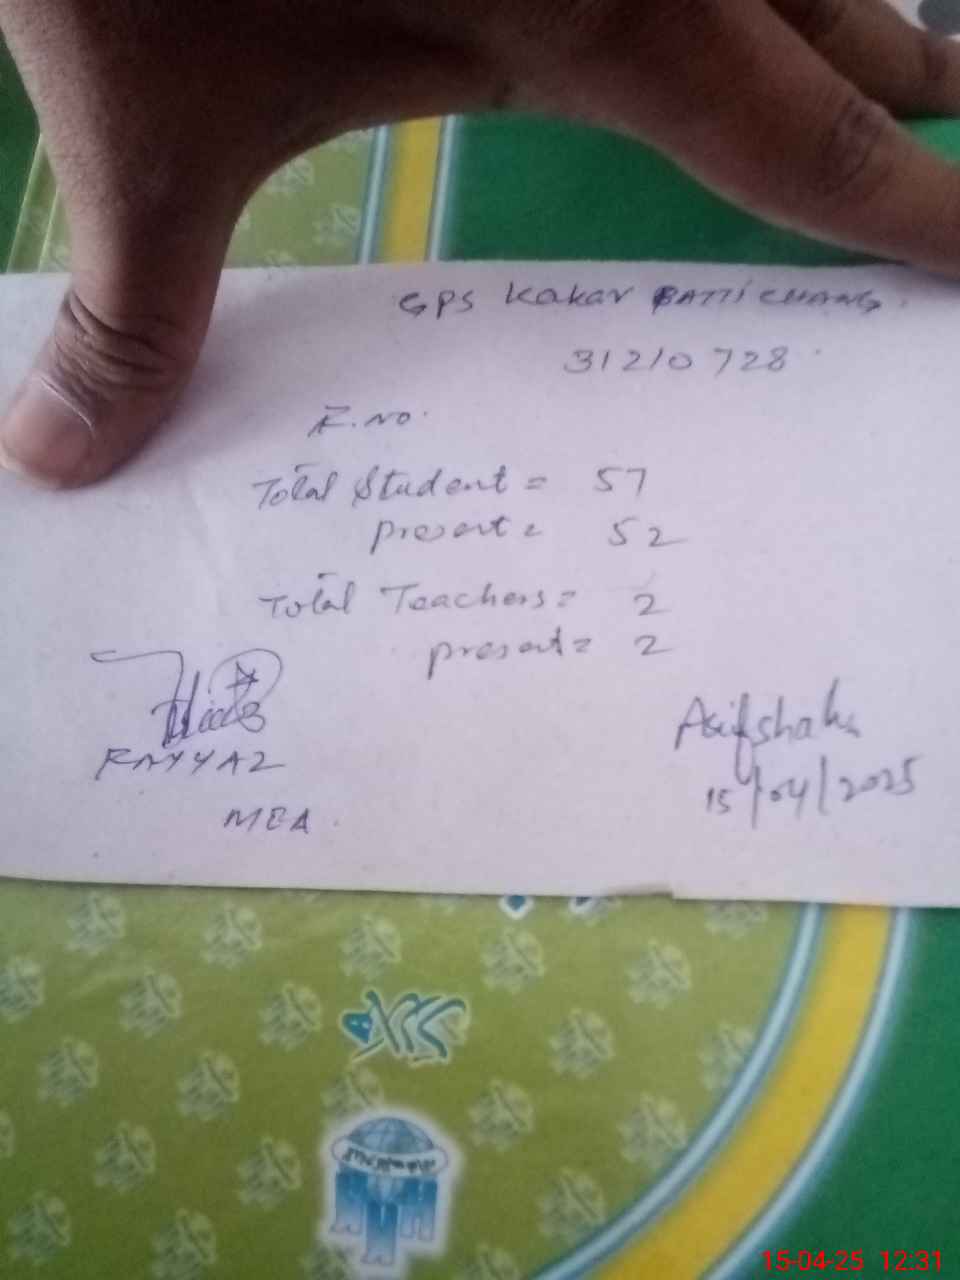 GPS Kakar BATTI CHANG.
31210728
R.NO.
Total Student = 57
present = 52
Total Teachers = 2
present = 2
FAYYAZ
MEA.
Asifshah
15/04/2025
15-04-25 12:31